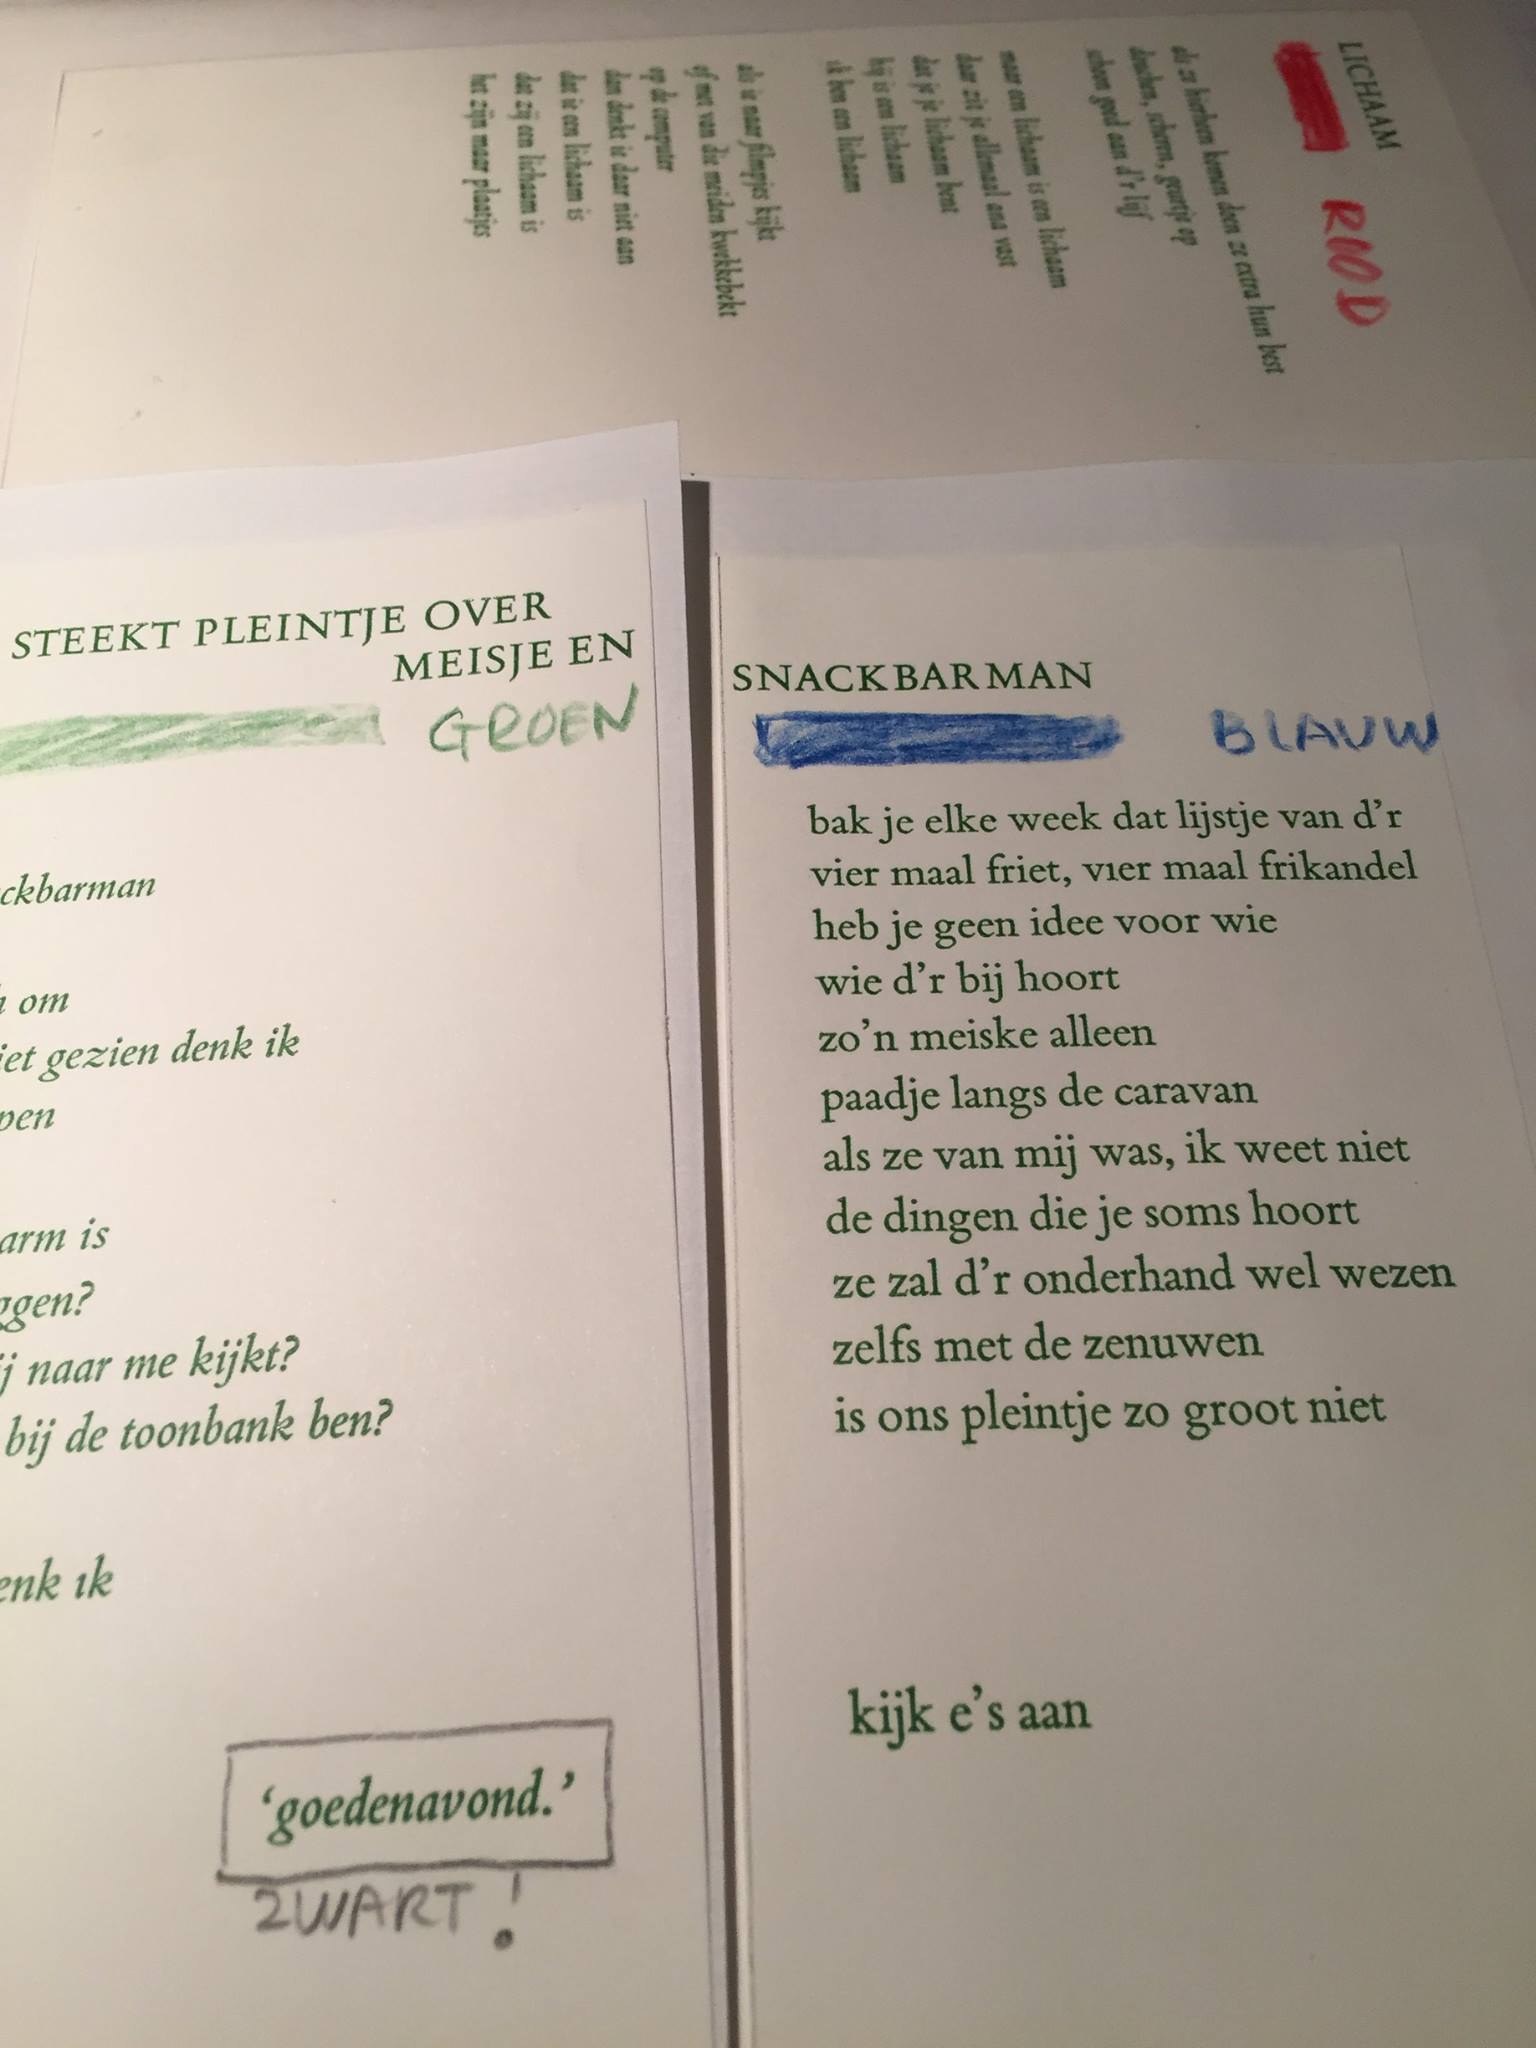 LICHAAM
ROOD
als ze hierheen komen doen ze extra hun best
douchen, scheren, geurtje op
schoon goed aan d'r lijf
maar een lichaam is een lichaam
daar zit je allemaal ana vast
dat je je lichaam bent
hij is een lichaam
ik ben een lichaam
als ie naar filmpjes kijkt
of met van die meiden kwekkebekt
op de computer
dan denkt ie daar niet aan
dat ie een lichaam is
dat zij een lichaam is
het zijn maar plaatjes
STEEKT PLEINTJE OVER
MEISJE EN
GROEN
ckbarman
om
iet gezien denk ik
pen
arm is
ggen?
ij naar me kijkt?
bij de toonbank ben?
enk ik
‘goedenavond.’
ZWART!
SNACKBARMAN
BLAUW
bak je elke week dat lijstje van d’r
vier maal friet, vier maal frikandel
heb je geen idee voor wie
wie d’r bij hoort
zo’n meiske alleen
paadje langs de caravan
als ze van mij was, ik weet niet
de dingen die je soms hoort
ze zal d’r onderhand wel wezen
zelfs met de zenuwen
is ons pleintje zo groot niet
kijk e’s aan